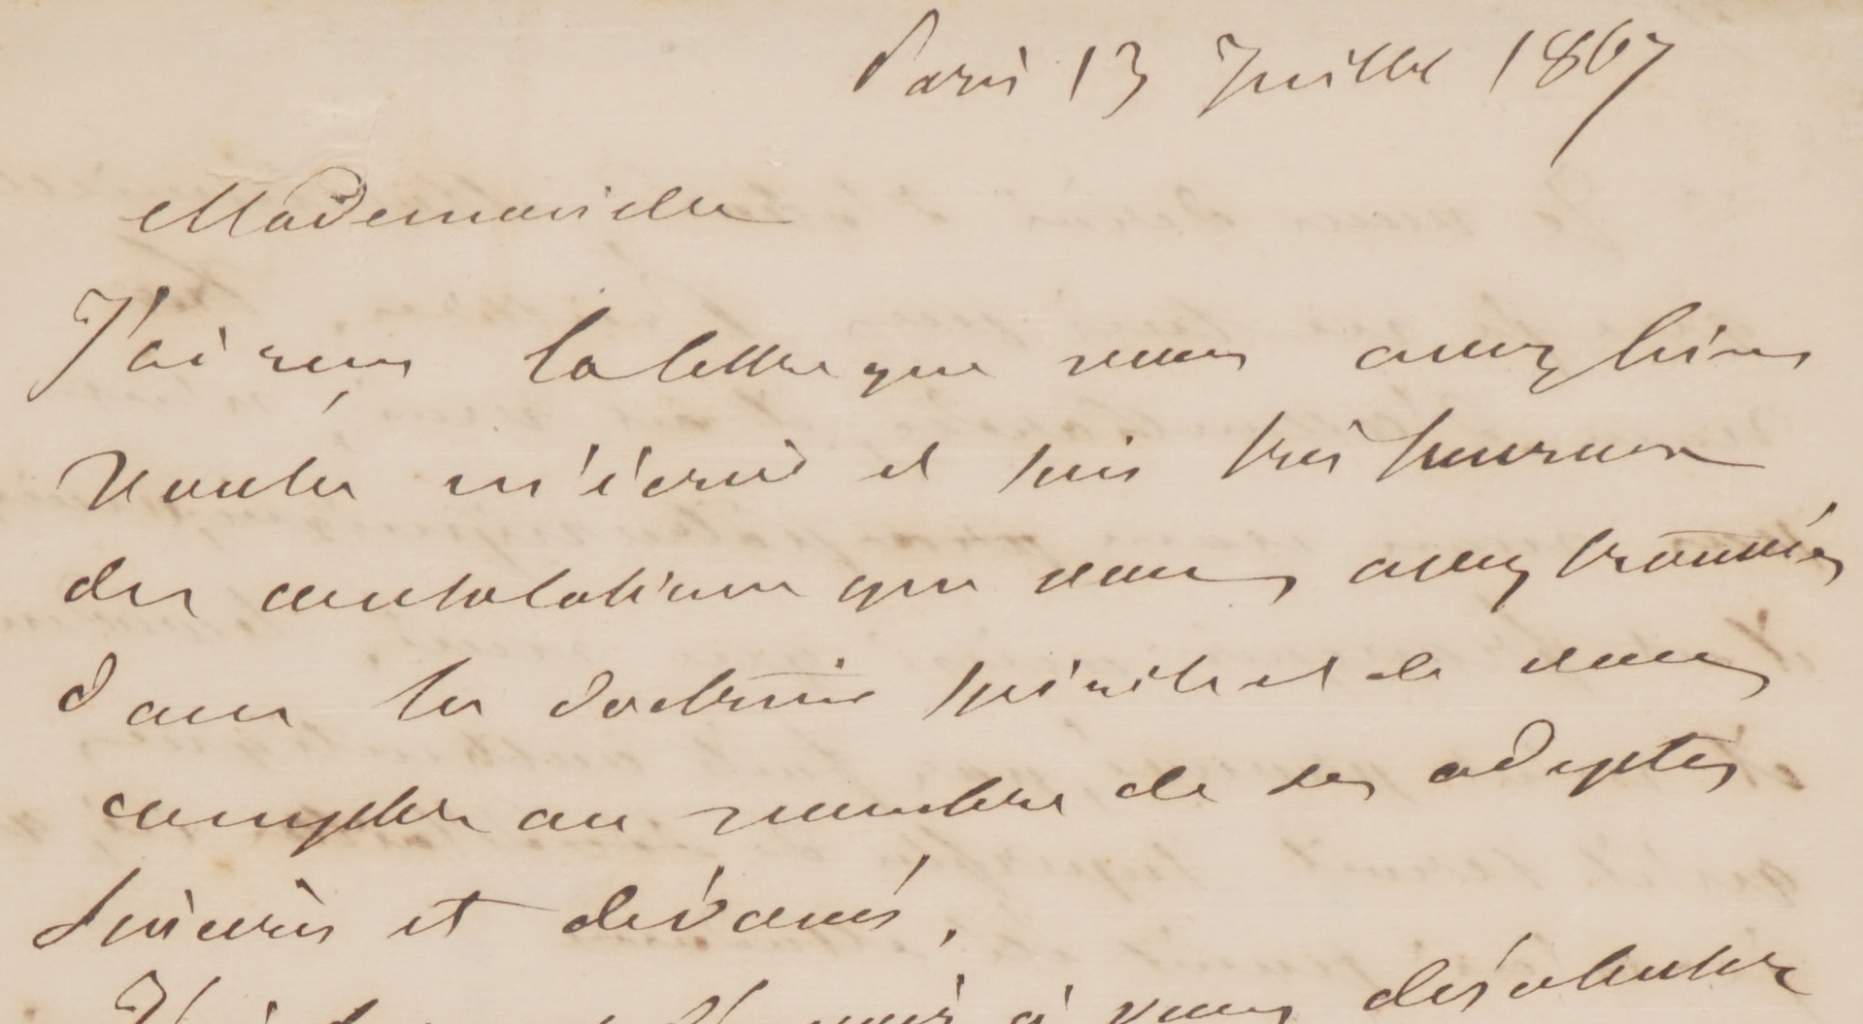 Paris 13 Juillet 1867
Mademoiselle
J'ai reçu la lettre que vous avez bien
voulu m'écrire et suis très heureux
des consolations que vous avez trouvées
dans la doctrine spirite et de vous
compter au nombre de ses adeptes
sincères et dévoués.
à vous désabuser